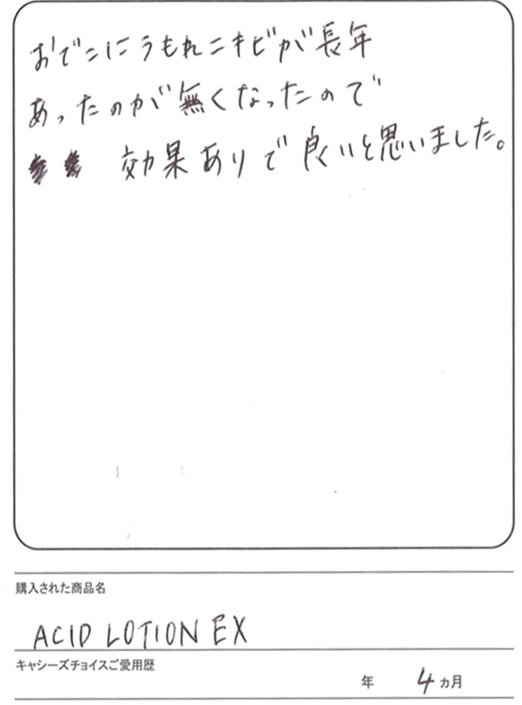 おでこにうもれニキビが長年
あったのが無くなったので
効果ありで良いと思いました。
購入された商品名
ACID LOTION EX
キャシーズチョイスご愛用歴
年 4 カ月